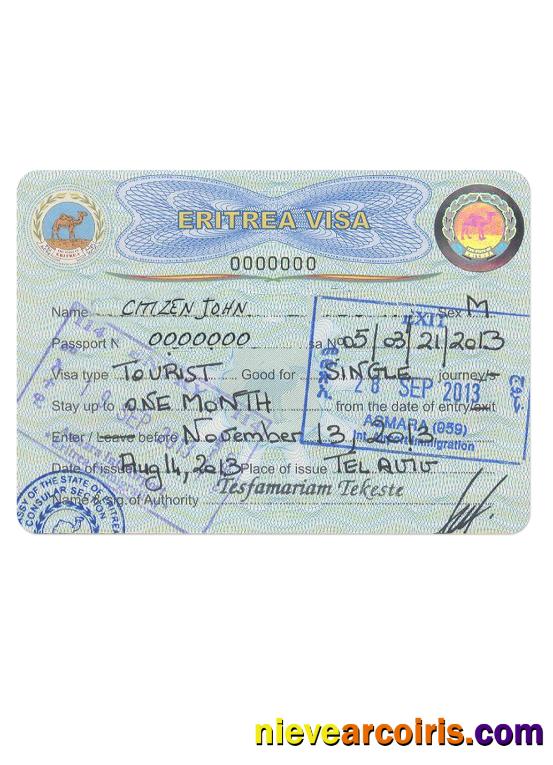 ERITREA VISA
0000000
Name CITIZEN JOHN Sex M
Passport N 0000000 sa No 05/03/21/2013
Visa type TOURIST Good for SINGLE journey/s
Stay up to ONE MONTH from the date of entry/exit
Enter / Leave before November 13, 2013
Date of issue Aug 14, 2013 Place of issue TEL AVIV
Name & sig. of Authority Tesfamariam Tekeste
EXIT
28 SEP 2013
ASMARA (059)
Immigration
SEP
SSY OF THE STATE OF ERITREA
CONSULAR SECTION
nievearcoiris.com